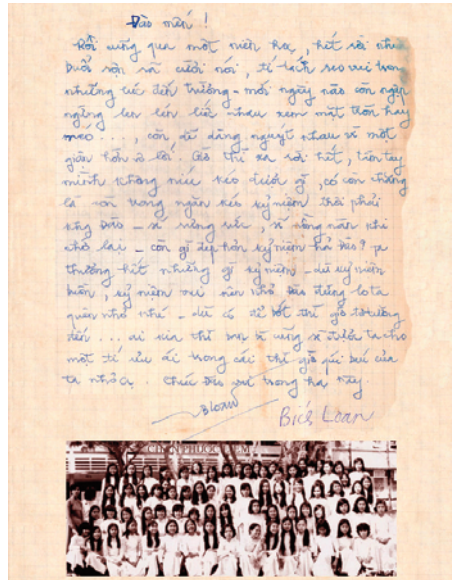 Đào mến !
Rồi cũng qua một niên học, hết rồi những
buổi rộn rã cười nói, tí tách reo vui trong
những lúc đến trường - mới ngày nào còn ngập
ngừng len lén liếc nhau xem mặt tròn hay
méo ..., còn dễ dàng nguýt nhau vì một
giận hờn vô lối. Giờ thì xa rồi hết, tầm tay
mình không níu kéo được gì, có còn chăng
là trong ngăn kéo kỷ niệm thôi phải
khg Đào - sẽ rưng rức, sẽ nồng nàn khi
nhớ lại - còn gì đẹp hơn kỷ niệm hả Đào?
thương hết những gì kỷ niệm - dù kỷ niệm
buồn, kỷ niệm vui nên nhớ Đào đừng
quên nhớ nhé - dù có
đến ... ai kia thì cũng sẽ ta cho
một tí ưu ái trong cái thì giờ quí báu của
ta nhỏ ạ. Chúc Đào vui trong hạ này.
BLoan
Bích Loan
PHƯỚC